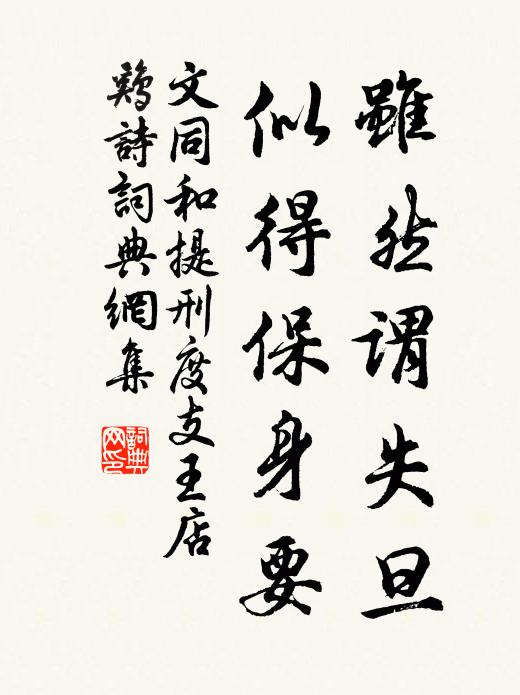 雖然谓失旦
似得保身要
文同和提刑度支王店
鷄詩詞典網集
詞典
网印